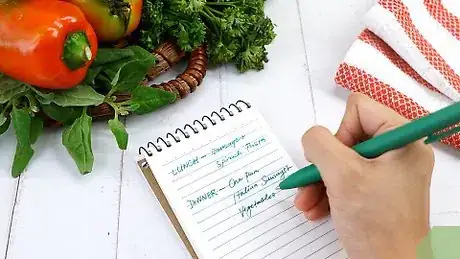 LUNCH - Sausage
Spinach Pasta
DINNER - One Pan
Italian Sausage
Vegetables